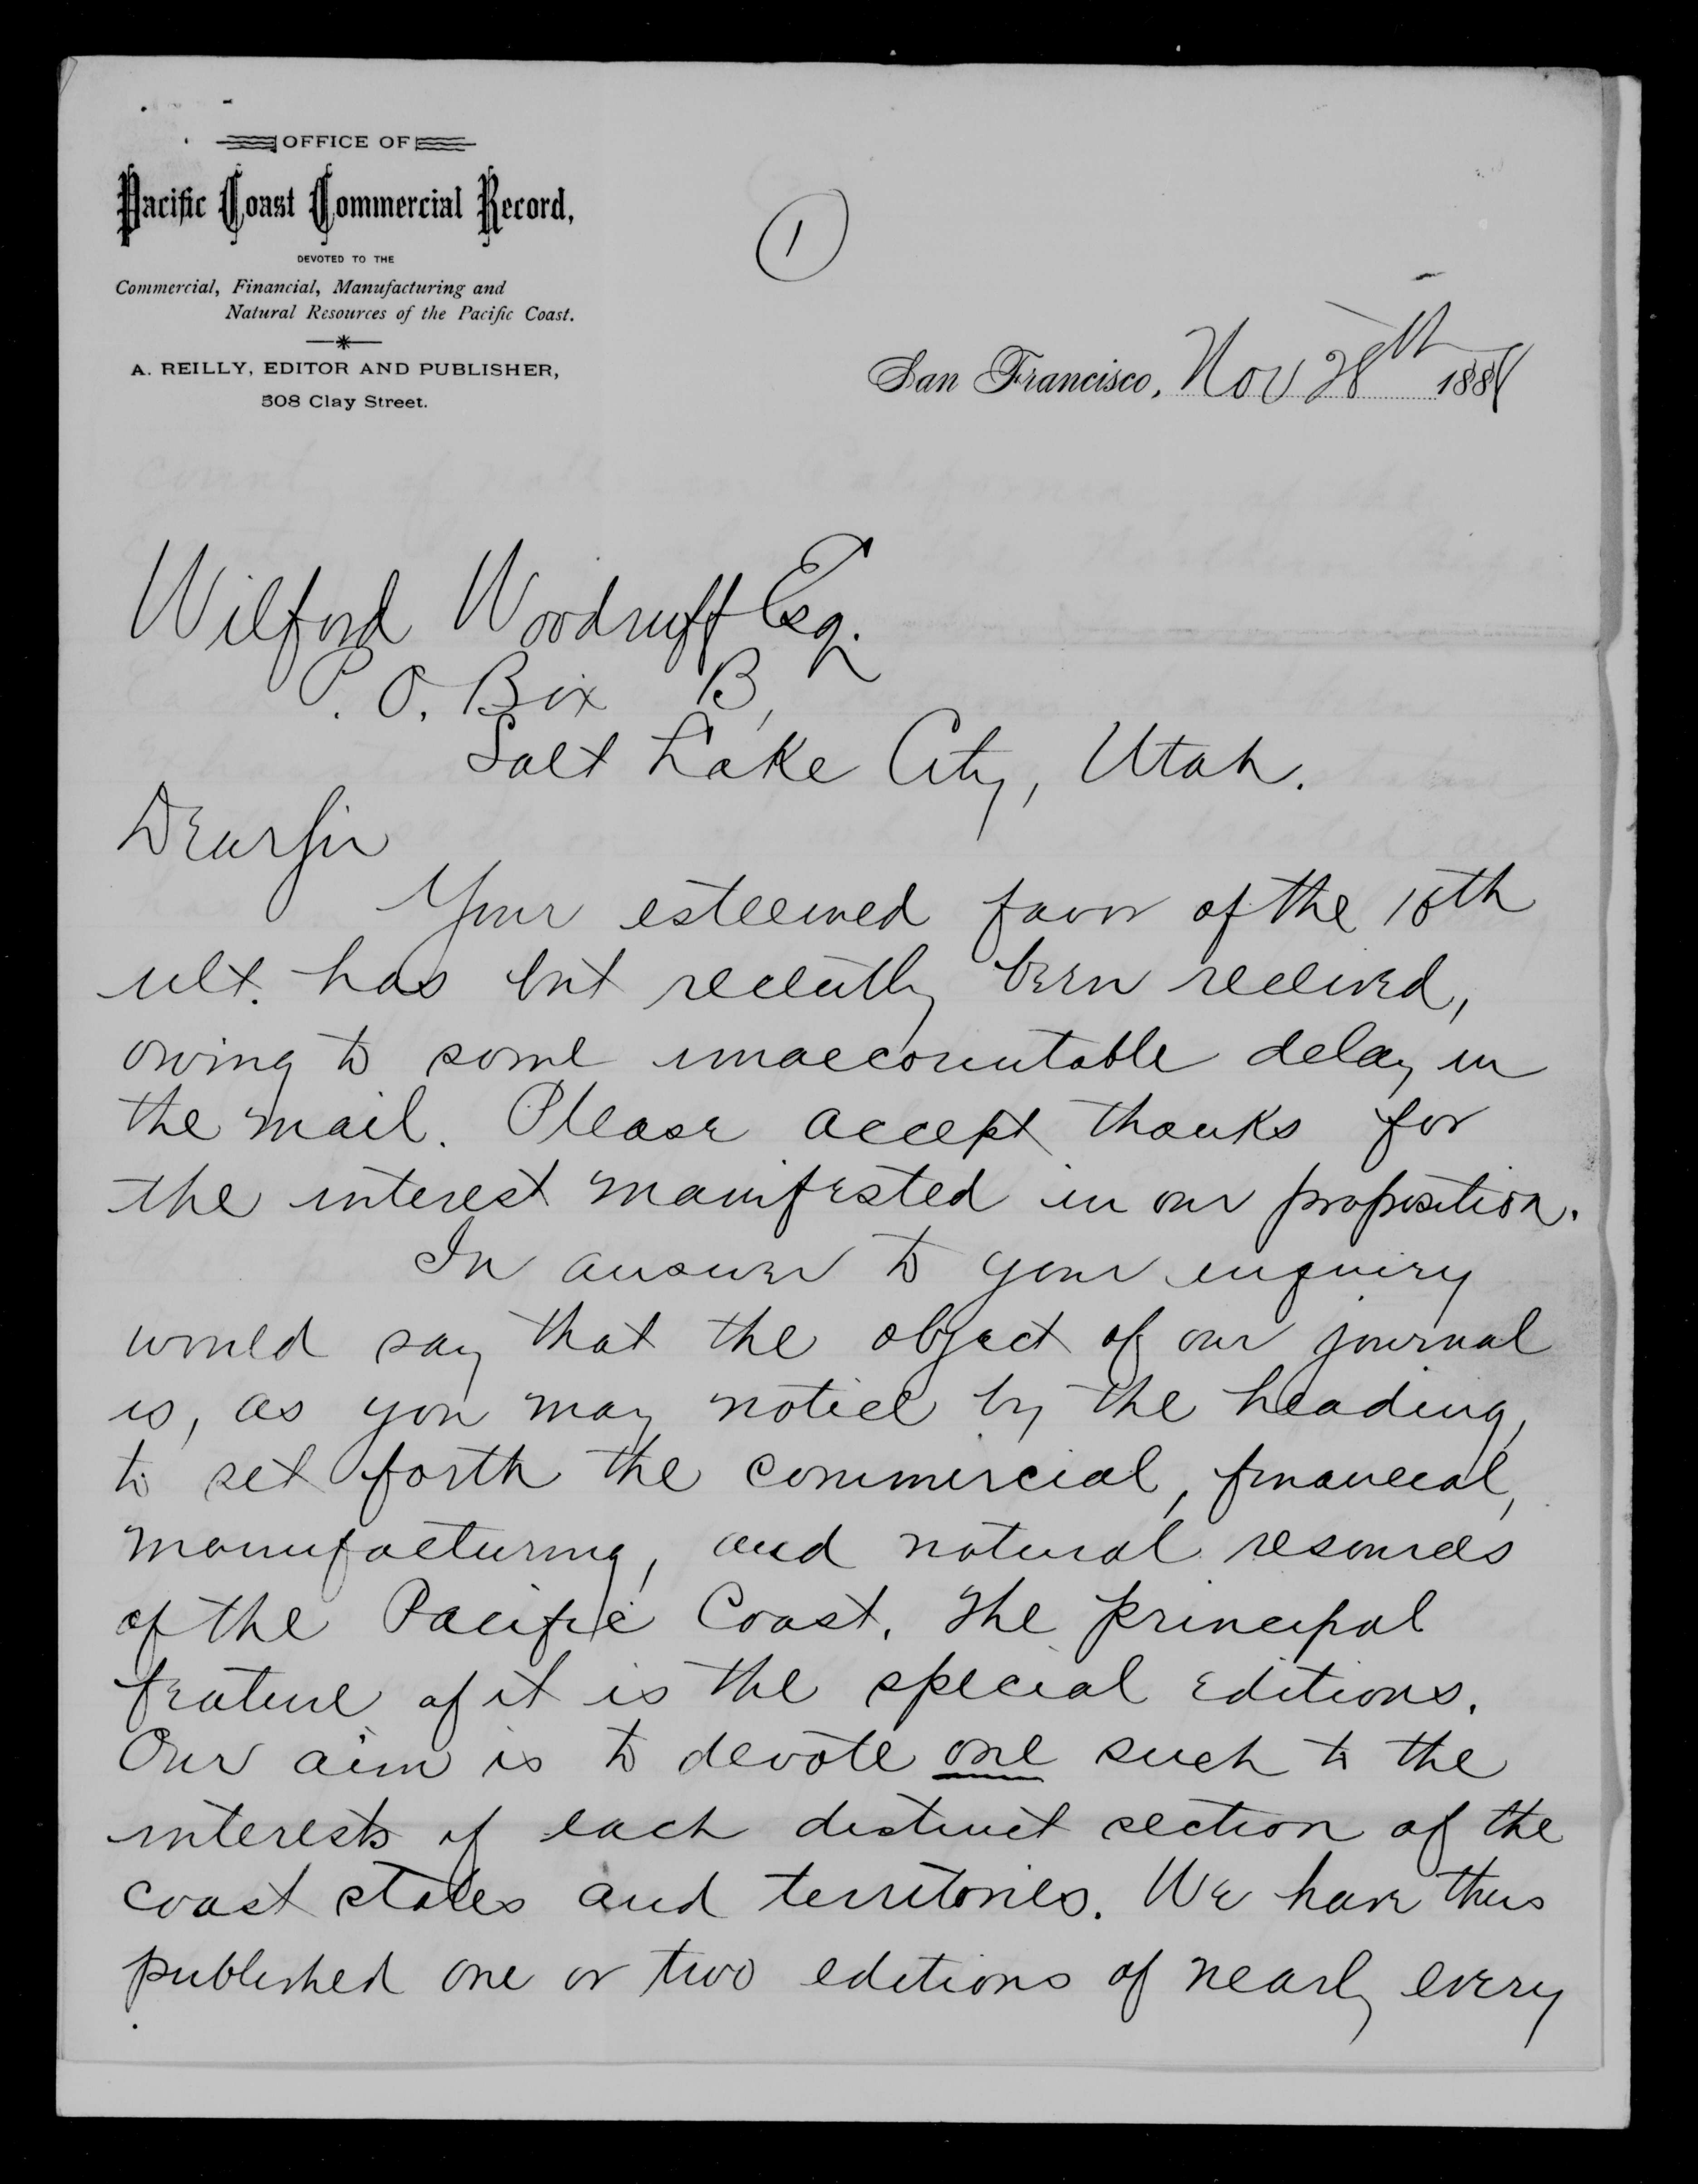 OFFICE OF
Pacific Coast Commercial Record,
DEVOTED TO THE
Commercial, Financial, Manufacturing and
Natural Resources of the Pacific Coast.
A. REILLY, EDITOR AND PUBLISHER,
508 Clay Street.
1
San Francisco, Nov 28th 188
Wilford Woodruff Esq.
P. O. Box B,
Salt Lake City, Utah.
Dear Sir
Your esteemed favor of the 18th
ult. has but recently been received,
owing to some unaccountable delay in
the mail. Please accept thanks for
the interest manifested in our proposition.
In answer to your enquiry
would say that the object of our journal
is, as you may notice by the heading,
to set forth the commercial, financial,
manufacturing, and natural resources
of the Pacific Coast. The principal
feature of it is the special editions.
Our aim is to devote one such to the
interests of each distinct section of the
coast states and territories. We have thus
published one or two editions of nearly every